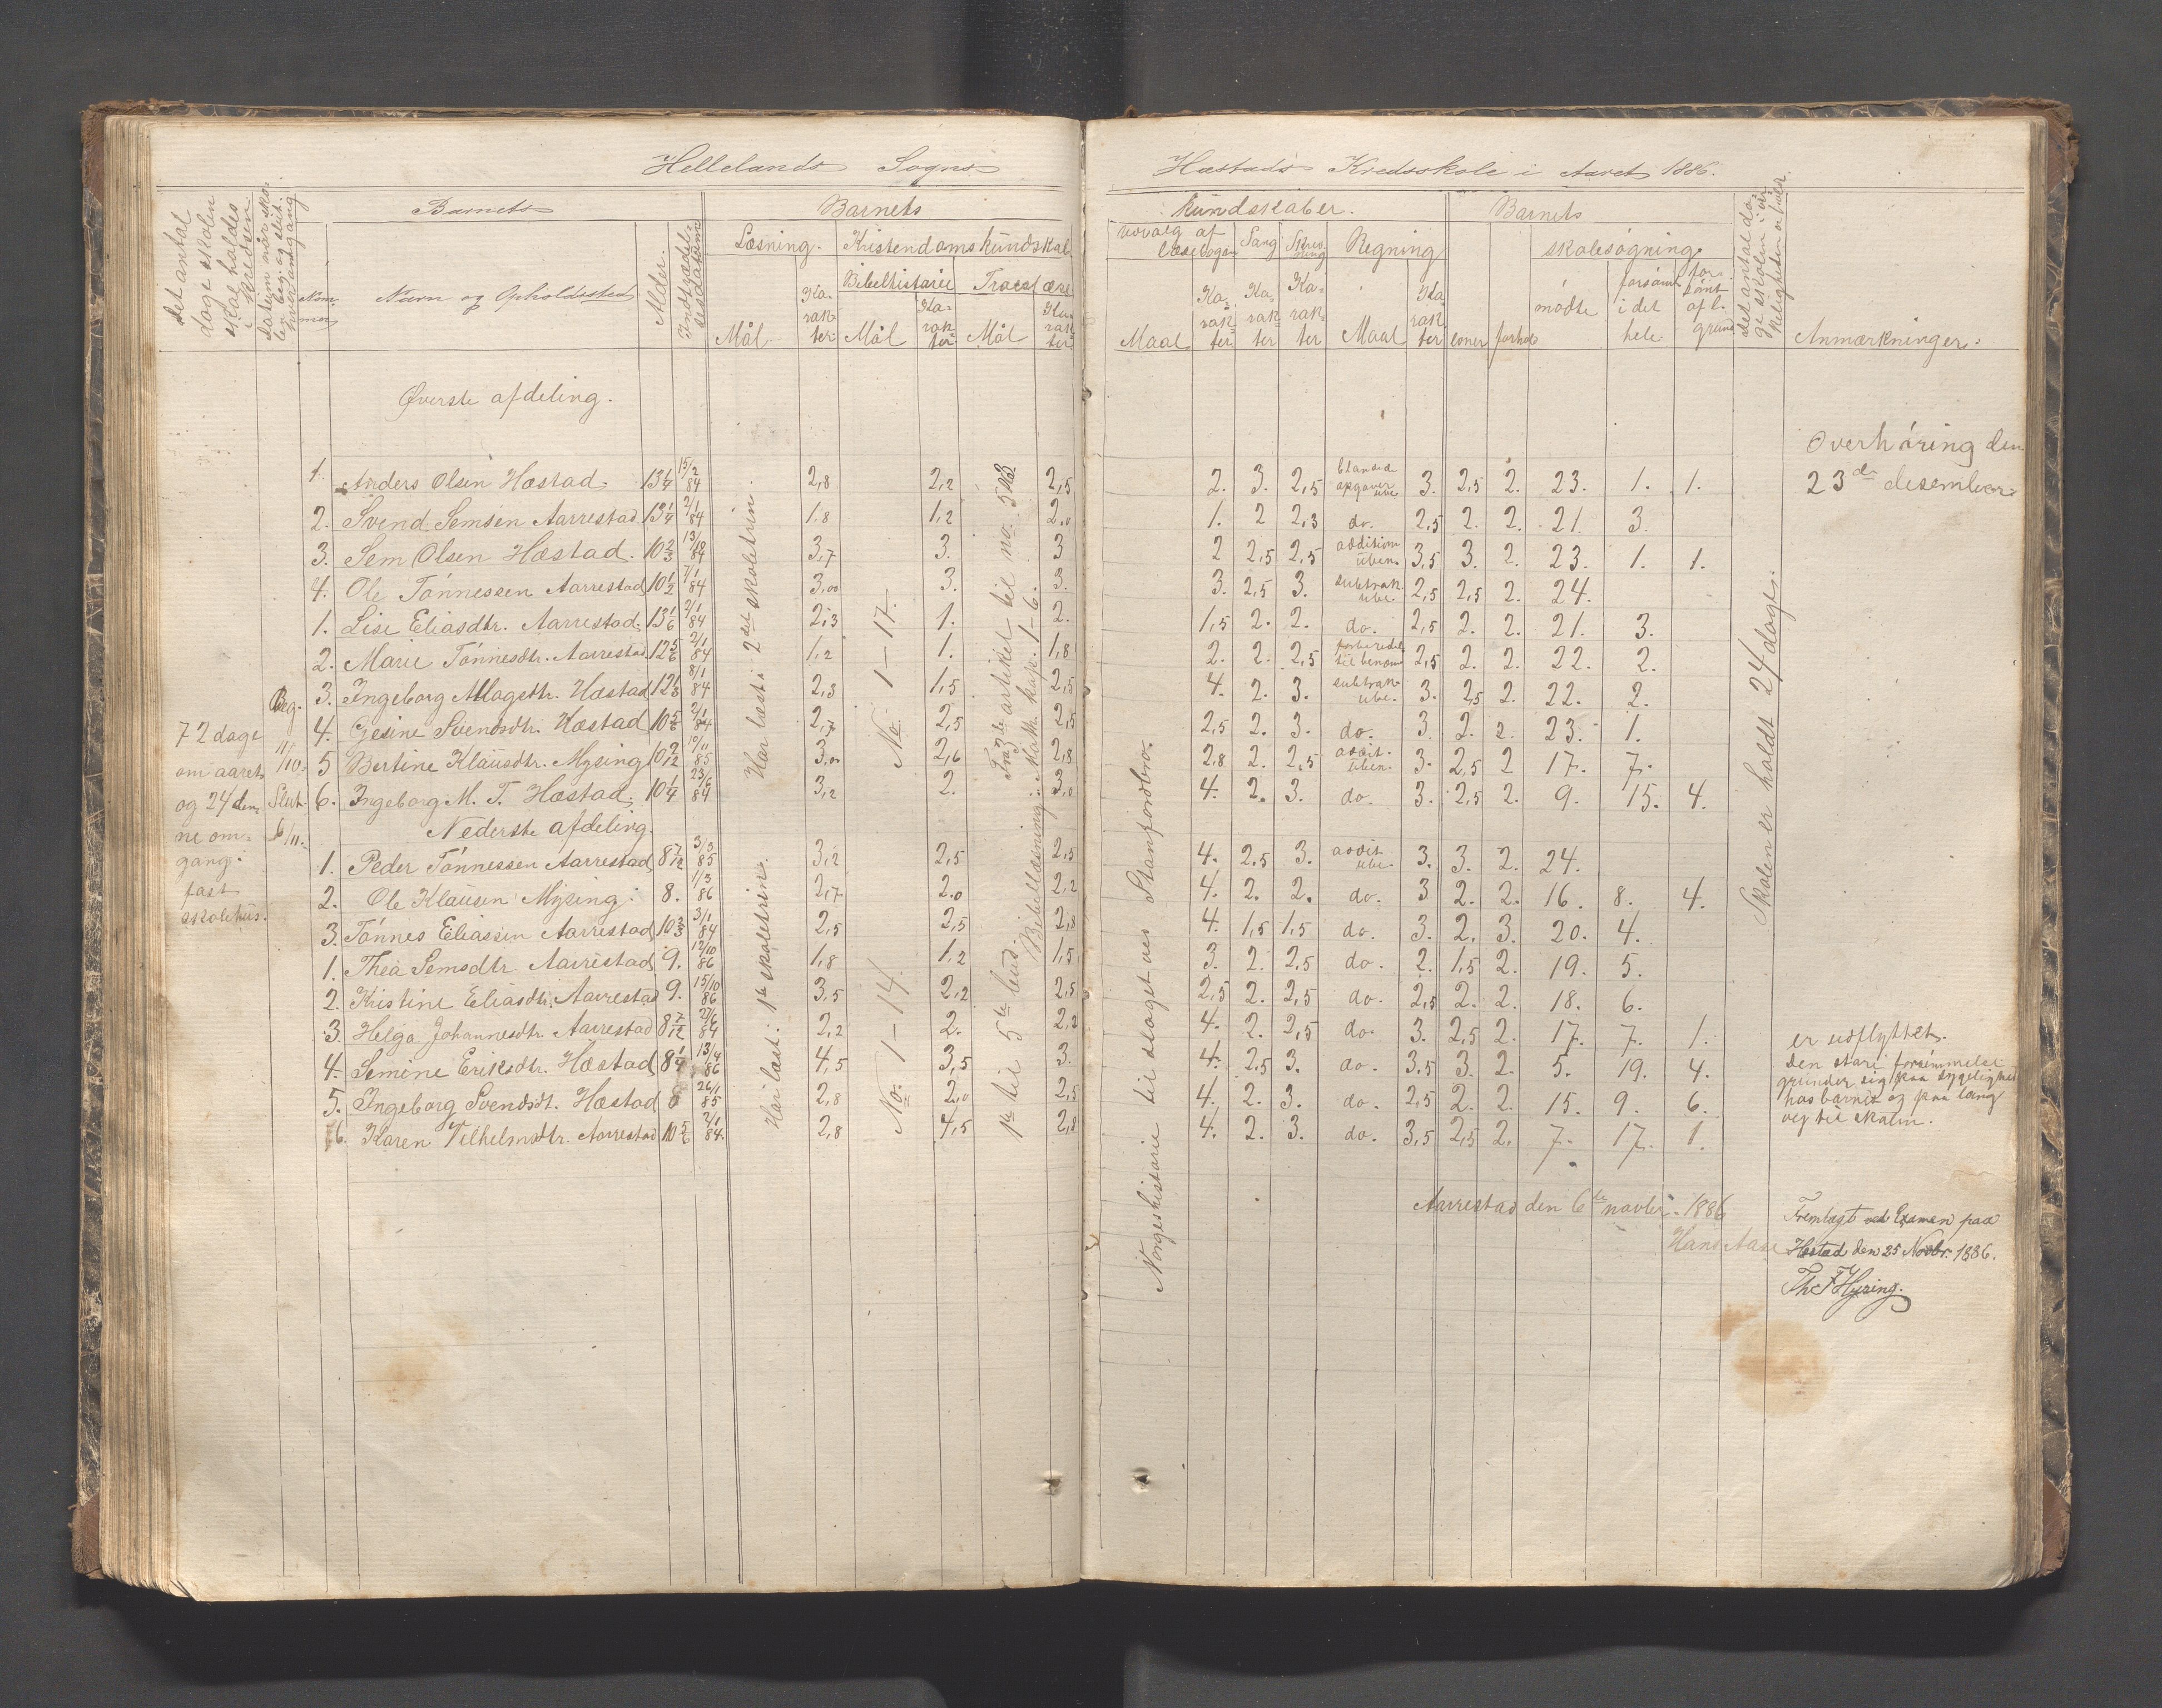 Hellelands Sogns
Hæstads Kredsskole i Aaret 1886.
Det antal dage skolen skal holdes i kredsen
Datum når skolen beg. og slut. hver omgang
Nommer
Barnets
Navn og Opholdssted
Alder.
Indtrædelsesdatum
Barnets
Læsning.
Mål
Karakter
Kristendomskundskab
Bibelhistorie
Mål
Karakter
Troeslære
Mål
Karakter
kundskaber.
udvalg af læsebogen
Maal
Karakter
Sang
Karakter
Skrivning
Karakter
Regning
Maal
Karakter
Barnets
evner
forhold
skolesøgning.
mødte
forsømt i det hele
forsømt af l. grund
Det antal dage skolen i virkeligheden er hold.
Anmærkninger.
Øverste afdeling.
Overhøring den
23de desember
1. Anders Olsen Hæstad. 13 1/4 15/2 84 2,8 2,2 2,5 2. 3. 2,5 blanded opgaver ube. 3. 2,5 2. 23. 1. 1.
2. Svend Semsen Aarrestad 13 1/4 2/1 84 1,8 1,2 2.0 1. 2 2,3 do. 2,5 2. 2. 21. 3.
3. Sem Olsen Hæstad. 10 2/3 13/10 84 3,7 3. 3 2 2,5 2,5 addition uben. 3,5 3. 2. 23. 1. 1.
4. Ole Tönnessen Aarrestad 10 1/2 7/1 84 3,00 3. 3. 3. 2,5 3. subtrak. ube. 2,5 2,5 2. 24.
1. Lise Eliasdtr. Aarrestad. 13 1/6 2/1 84 2,3 1. 2. 1,5 2. 2. do. 2,5 2. 2. 21. 3.
2. Marie Tönnesdtr. Aarrestad 12 5/6 2/1 84 1,2 1. 1,8 2. 2. 2,5 forberedel. til benævn 2,5 2. 2. 22. 2.
3. Ingeborg Aslagsdtr. Hæstad 12 1/3 8/1 84 2,3 1,5 2,5 4. 2. 3. subtrak. ube. 3. 2,5 2. 22. 2.
4. Gesine Svendsdtr. Hæstad 10 5/6 2/1 84 2,7 2,5 2,5 2,5 2. 3. do. 3. 2. 2. 23. 1.
5 Bertine Klausdtr. Mysing 10 2/12 10/11 85 3,0 2,6 2,8 2,8 2. 2,5 addit. uben. 3. 2,5 2 17. 7.
6. Ingeborg M. T. Hæstad. 10 1/4 23/6 84 3,2 2. 3,0 4. 2. 3. do. 3. 2,5 2. 9. 15. 4.
72 dage
om aaret
og 24 den-
ne om-
gang.
fast
skolehus.
Beg.
11/10.
Slut.
6/11.
Har læst i 2det skoletrin.
No. 1 – 17.
Fra 3die artikel til no. 5te bud
Bibellæsning: Math. kap. 1–6.
Nederste afdeling.
1. Peder Tönnessen Aarrestad 8 7/12 3/3 85 3,2 2,5 2,5 4. 2,5 3. addit. ube. 3. 3. 2. 24.
2. Ole Klausen Mysing. 8. 1/3 86 2,7 2.0 2,2 4. 2. 2. do. 3 2. 2. 16. 8. 4.
3. Tönnes Eliassen Aarrestad 10 2/3 3/1 84 2,5 2,5 2,8 4. 1,5 1,5 do. 3. 2. 3. 20. 4.
1. Thea Semsdtr. Aarrestad 9. 12/10 86 1,8 1,2 1,5 3. 2. 2,5 do. 2. 1,5 2. 19. 5.
2. Kristine Eliasdtr. Aarrestad 9. 15/10 86 3,5 2,2 2,5 2,5 2. 2,5 do. 2,5 2. 2. 18. 6.
3. Helga Johannesdtr. Aarrestad 8 7/12 2/6 84 2,2 2. 2,2 4. 2. 2,5 do. 3. 2,5 2. 17. 7. 1.
4. Semine Eriksdtr. Hæstad 8 1/4 13/4 86 4,5 3,5 3. 4. 2,5 3. do. 3,5 3. 2. 5. 19. 4.
5. Ingeborg Svendsdt. Hæstad 8 26/1 85 2,8 2,0 2,5 4. 2. 3. do. 2,5 2. 2. 15. 9. 6.
6. Karen Vilhelmsdtr. Aarrestad 10 5/6 2/1 84. 2,8 4,5 2,8 4. 2. 3. do. 3,5 2,5 2. 7. 17. 1.
Har læst i 1ste skoletrin.
No. 1 – 14.
1ste til 5te bud.
Norgeshistorie til slaget ved Stanfordbro.
Skolen er holdt 24 dage.
er udflyttet.
Den store forsømmelse
grunder sig paa sygelighed
hos barnet og paa lang
vej til skolen.
Aarrestad den 6te novbr. 1886
Hans Aase
Fremlagt ved Examen paa
Hæstad den 25 Novbr. 1886.
Th. F. Hysing.